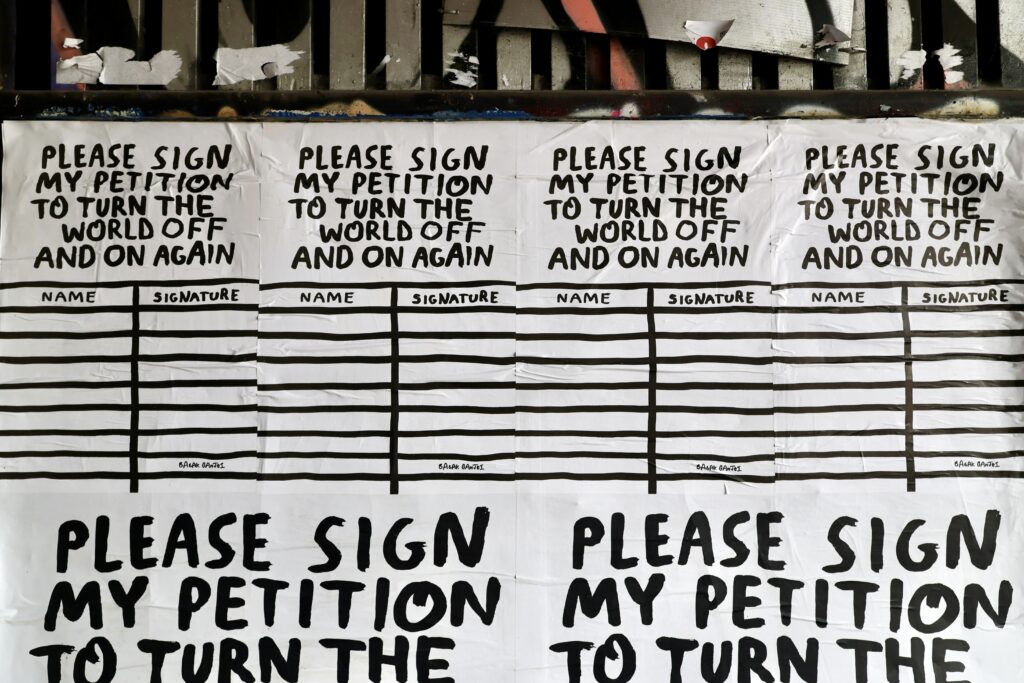 PLEASE SIGN
MY PETITION
TO TURN THE
WORLD OFF
AND ON AGAIN
NAME SIGNATURE
PLEASE SIGN
MY PETITION
TO TURN THE
WORLD OFF
AND ON AGAIN
NAME SIGNATURE
PLEASE SIGN
MY PETITION
TO TURN THE
WORLD OFF
AND ON AGAIN
NAME SIGNATURE
PLEASE SIGN
MY PETITION
TO TURN THE
WORLD OFF
AND ON AGAIN
NAME SIGNATURE
PLEASE SIGN
MY PETITION
TO TURN THE
PLEASE SIGN
MY PETITION
TO TURN THE